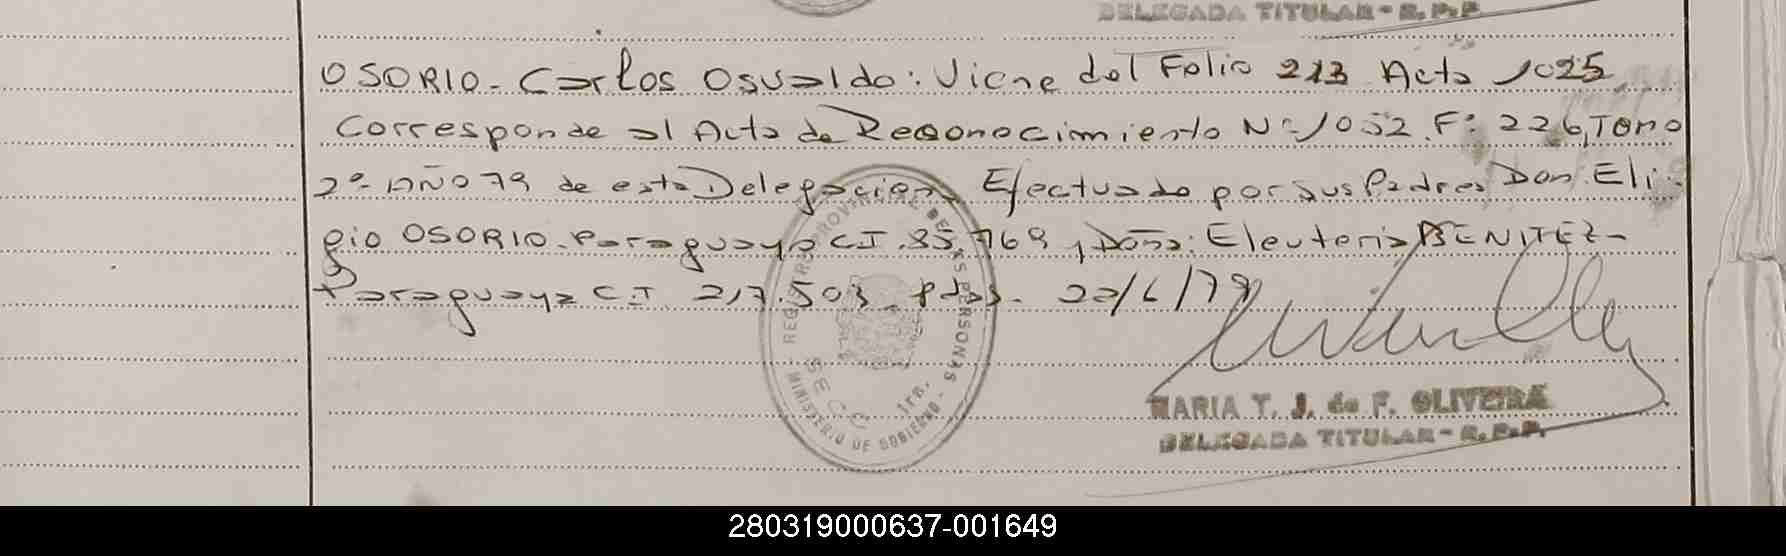 DELEGADA TITULAR - R. P. P.
OSORIO - Carlos Osvaldo: Viene del Folio 213 Acta 1025
Corresponde al Acta de Reconocimiento Nº 1052 Fº 226, Tomo
2º - AÑO 79 de esta Delegacion, Efectuado por sus Padres Don: Eli-
gio OSORIO - Paraguayo C.I. 85.769, Doña: Eleuteria BENITEZ -
Paraguaya C.I. 217.503 Pdas. 22/6/79
REGISTRO PROVINCIAL DE LAS PERSONAS - MINISTERIO DE GOBIERNO -
SECC. 1ra.
MARIA T. J. de F. OLIVEIRA
DELEGADA TITULAR - R. P. P.
280319000637-001649